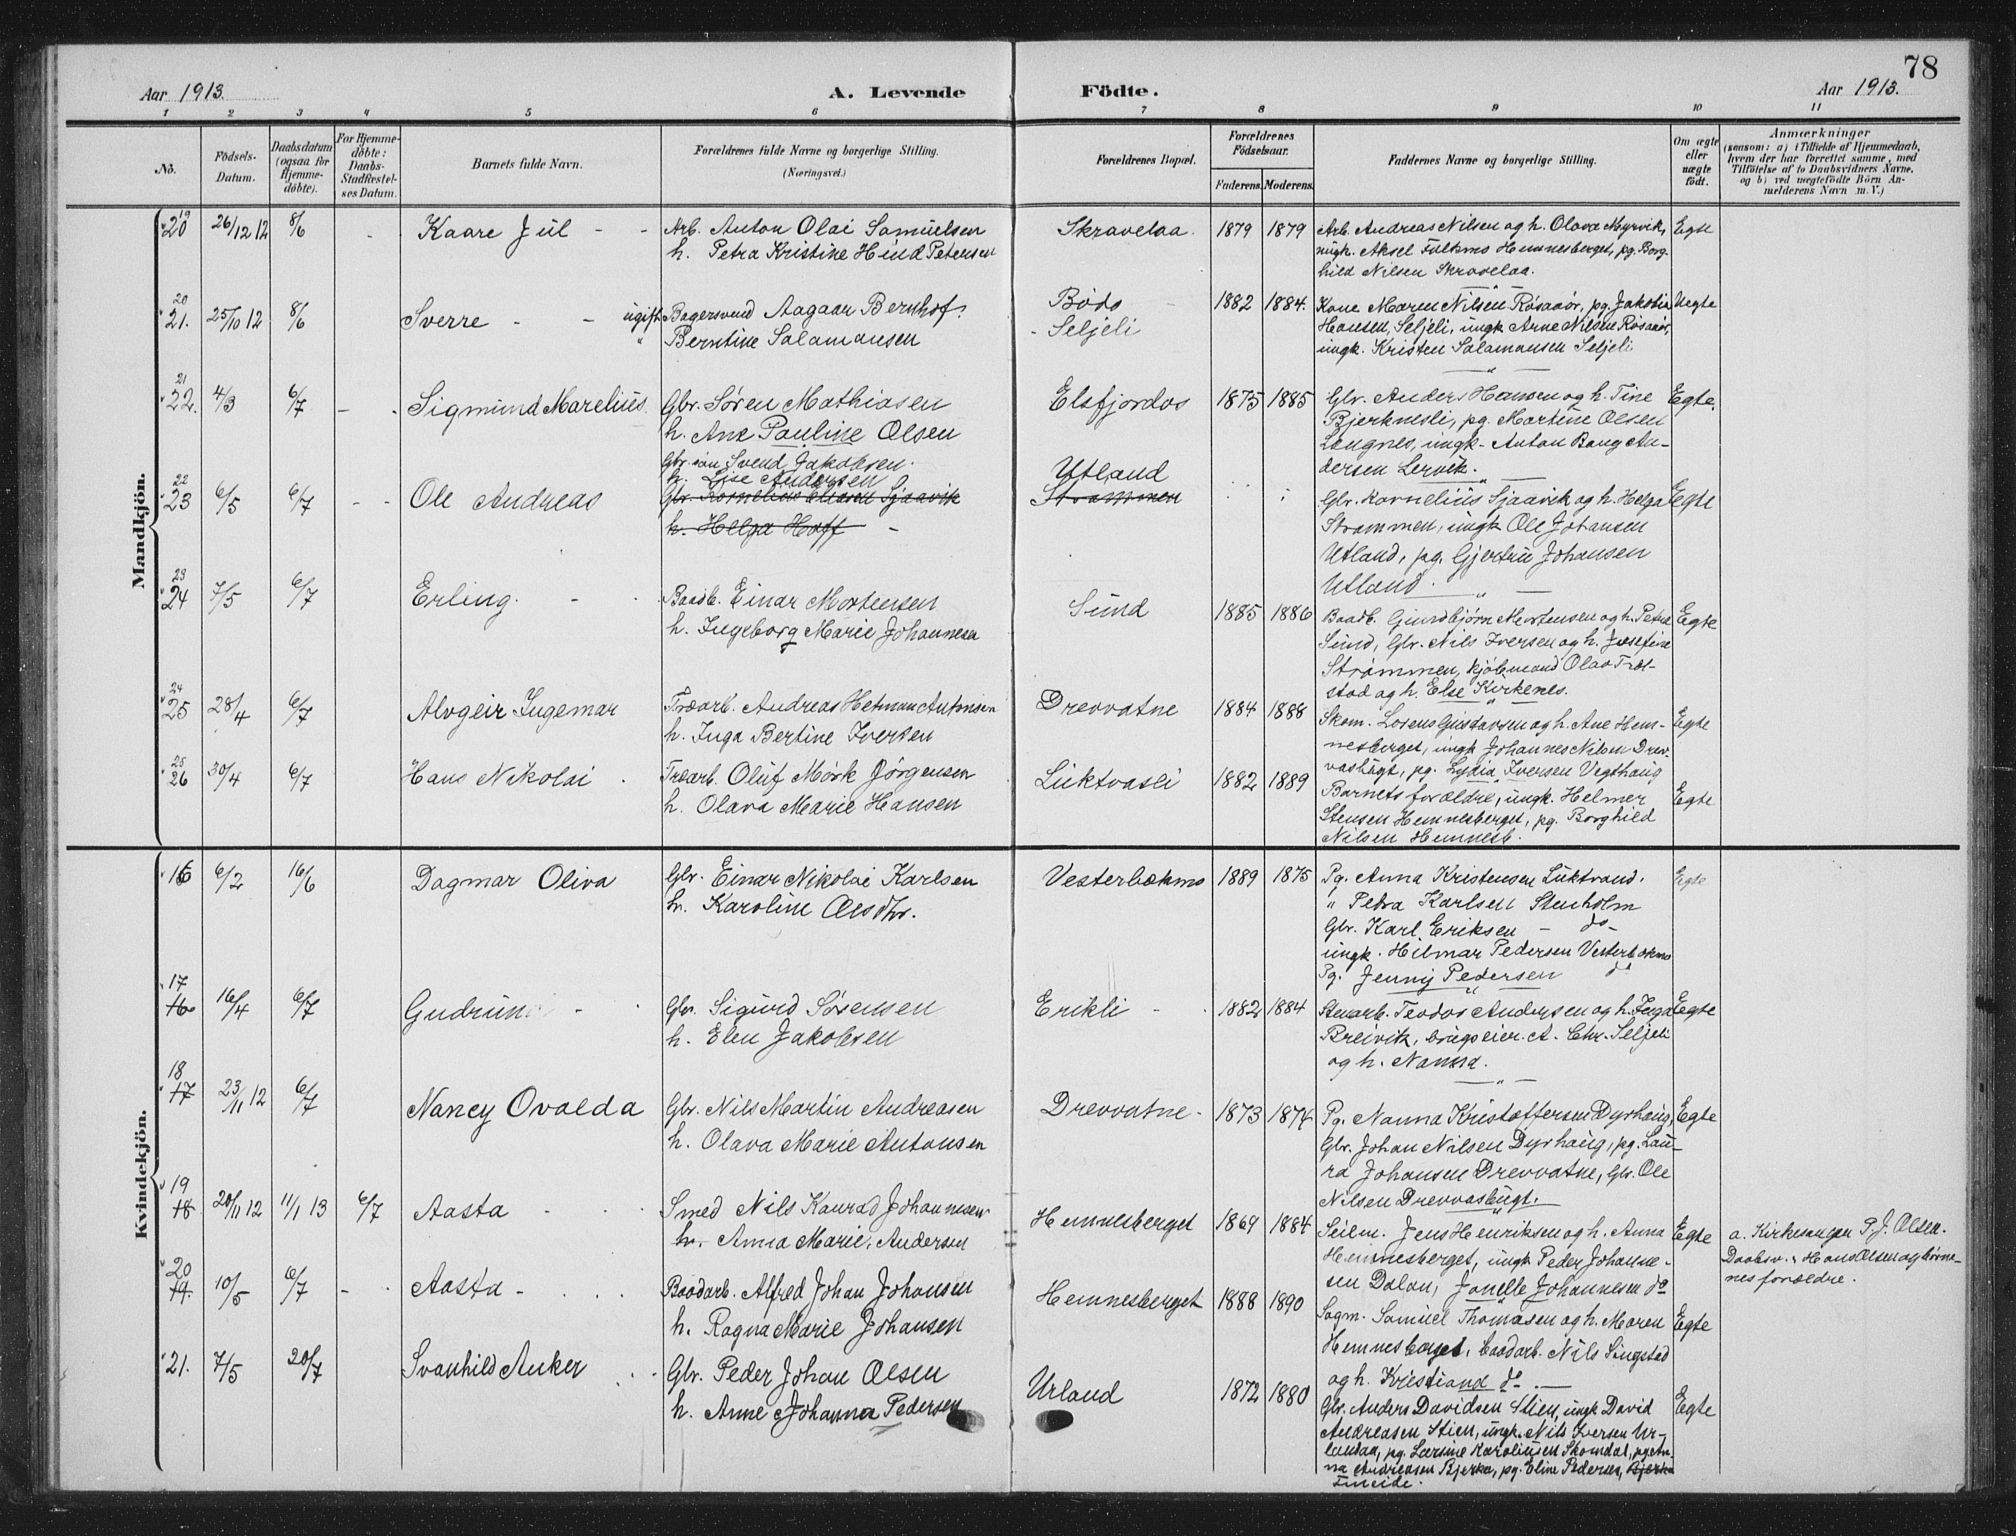 78
Aar 1913.
A. Levende
Födte.
Aar 1913.
1 2 3 4 5 6 7 8 9 10 11
No.
Födsels-
Datum.
Daabsdatum
(ogsaa for
Hjemme-
döbte).
For Hjemme-
döbte:
Daabs-
Stadfestel-
ses Datum.
Barnets fulde Navn.
Forældrenes fulde Navne og borgerlige Stilling.
(Næringsvei.)
Forældrenes Bopæl.
Forældrenes
Födselsaar.
Faderens. Moderens.
Faddernes Navne og borgerlige Stilling.
Om ægte
eller
nægte
født.
Anmærkninger
(saasom: a) i Tilfælde af Hjemmedaab,
hvem der har forrettet samme, med
Tilföielse af to Daabsvidners Navne.
og b) ved uægtefödte Börn An-
melderens Navn m. V.)
Mandkjön.
19
20 26/12 12 8/6 - Kaare Jul - - Arb. Anton Olai Samuelsen
h. Petra Kristine Hind Petersen
Skravelaa. 1879 1879
Arb. Andreas Nilsen og h. Olava Myrvik,
ungk. Aksel Falkmo Hemnesberget, pg. Borg-
hild Nilsen Skravelaa.
Egte
20
21. 25/10 12 8/6 Sverre - - ugift Bagersvend Aagaar Bernhof.
" Berntine Salamonsen
Bodø
- Seljeli
1882 1884.
Kone Maren Nilsen Røsaaør, pg. Jakobia
Hansen, Seljeli, ungk Arne Nilsen Røsaaør,
ungk. Kristen Salamonsen Seljeli
Uegte
21
22. 4/3 6/7 - Sigmund Marelius. Gbr. Søren Mathiasen
h. Ane Pauline Olsen
Elsfjordos 1875 1885
Glr. Anders Hansen og h. Tine
Bjerknesli, pg. Martine Olsen
Langnes, ungk. Anton Bang An-
dersen Lervik.
Egte.
22
23 6/5 6/7 - - Ole Andreas
Gbr. søn Svend Jakobsen.
h. Lise Andersen
Gbr. Kornelius Olsen Sjaavik
h. Helga Hoff -
Utland
Strammen
Glr. Kornelius Sjaavik og h. Helga
Strømmen, ungk Ole Johansen
Utland, pg. Gjertru Johansen
Utland.
Egte
23
24 7/5 6/7 Erling. - Baadb. Einar Mortensen
h. Ingeborg Marie Johannesen
Sund 1885 1886
Baadb. Gundbjørn Mortensen og h. Petra
Sund, Glr. Nils Iversen og h. Josefine
Strømmen, kjøbmand Olav Træt-
stad og h. Else Kirkenes.
Egte
24
25 28/4 6/7 Alvgeir Ingemar Træarb. Andreas Hetman Antonsen
h. Inga Bertine Iversen
Drevvatne 1884 1888
Skom. Lorens Gustavsen og h. Ane Hem-
nesberget, ungk Johannes Nilsen Drev-
vasbugt, pg. Lydia Iversen Vegthaug
Egte
25
26 30/4 6/7 Hans Nikolai. Træarb. Oluf Mørk Jørgensen
h. Olava Marie Hansen
Luktvasli 1882 1889
Barnets forældre, ungk. Helmer
Stensen Hemnesberget, pg. Borghild
Nilsen Hemnesb.
Egte
Kvindekjön.
16 6/2 16/6 Dagmar Oliva Gbr. Einar Nikolai Karlsen
h. Karoline Olsdtr.
Vesterbækmo 1889 1875
Pg. Anna Kristensen Luktvand.
" Petra Karlsen Stenholm
Gbr. Karl Eriksen - do -
ungk. Hilmar Pedersen Vesterbækmo
Pg. Jenny Pedersen d
Egte
17
16 16/4 6/7 Gudrun - Gbr. Sigurd Sørensen
h. Elen Jakobsen
Erikli - 1882 1884
Stenarb. Teodor Andersen og h. Inga
Breivik, brugseier A. Chr. Seljeli
og h. Nanna.
Egte
18
17 23/11 12 6/7 Nancy Ovalda Gbr. Nils Martin Andreasen
h. Olava Marie Antonsen
Drevvatne - 1873 1874
Pg. Nanna Kristoffersen Dyrhaug,
Gbr. Johan Nilsen Dyrhaug, pg. Lau-
ra Johansen Drevvatne, Gbr. Ole
Nilsen Drevvasbugt.
Egte
19
18. 20/11 12 11/1 13 6/7 Aasta Smed Nils Konrad Johannesen
h. Anna Marie Andersen
Hemnesberget 1869 1884
Seilm. Jens Henriksen og h. Anna
Hemnesberget, ungk Peder Johanne-
sen Dalan, Janelle Johannesen do
Egte
a. Kirkesanger P. J. Olsen.
Daabsv.: Hans Olsen og barne-
nes forældre.
20
19. 10/5 6/7 - Aasta - Baadarb. Alfred Johan Johansen
h. Ragna Marie Johansen
Hemnesberget 1888 1890
Sagm. Samuel Thomasen og h. Maren
Hemnesberget, baadarb. Nils Singstad
og h. Kristiand do
Egte
21. 7/5 20/7 Svanhild Anker Gbr. Peder Johan Olsen
h. Anne Johanna Pedersen
Urland 1872 1880
Gbr. Anders Davidsen Stien, ungk David
Andreasen Stien, ungk. Nils Iversen Ur-
landaa, pg. Larsine Karoliusen Skomdal, pg. An-
na Andreasen Bjerka, pg. Eline Pedersen, Bjerka
Fineide.
Egte